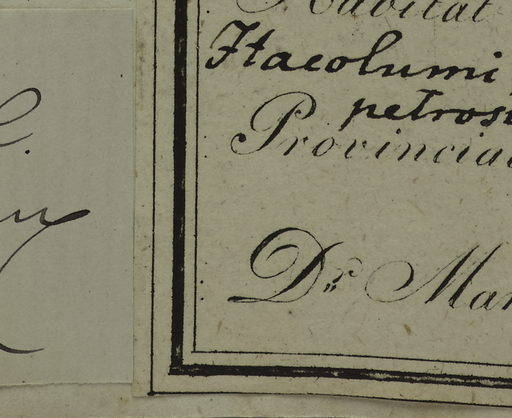 Habitat
Itacolumi,
petros
Provincia
Dr. Mar